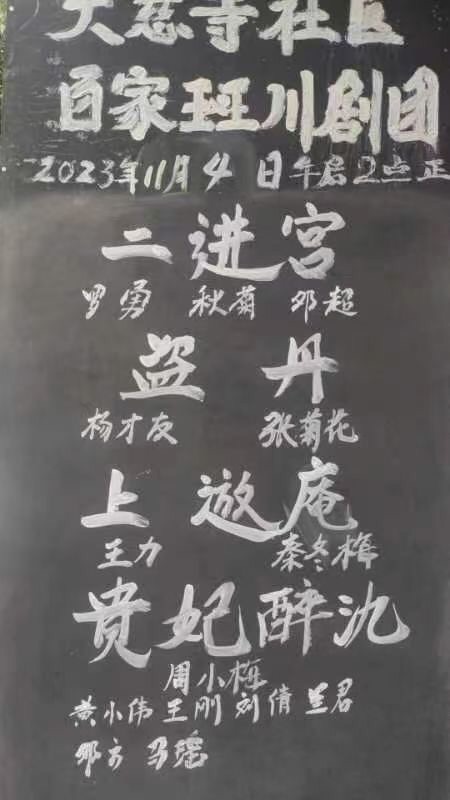 大慈寺社区
百家班川剧团
2023年11月4日午后2点正
二进宫
罗勇 秋菊 邓超
盗丹
杨才友 张菊花
上遊庵
王力 秦冬梅
贵妃醉氿
周小梅
黄小伟 王刚 刘倩 兰君
邓方 马瑶